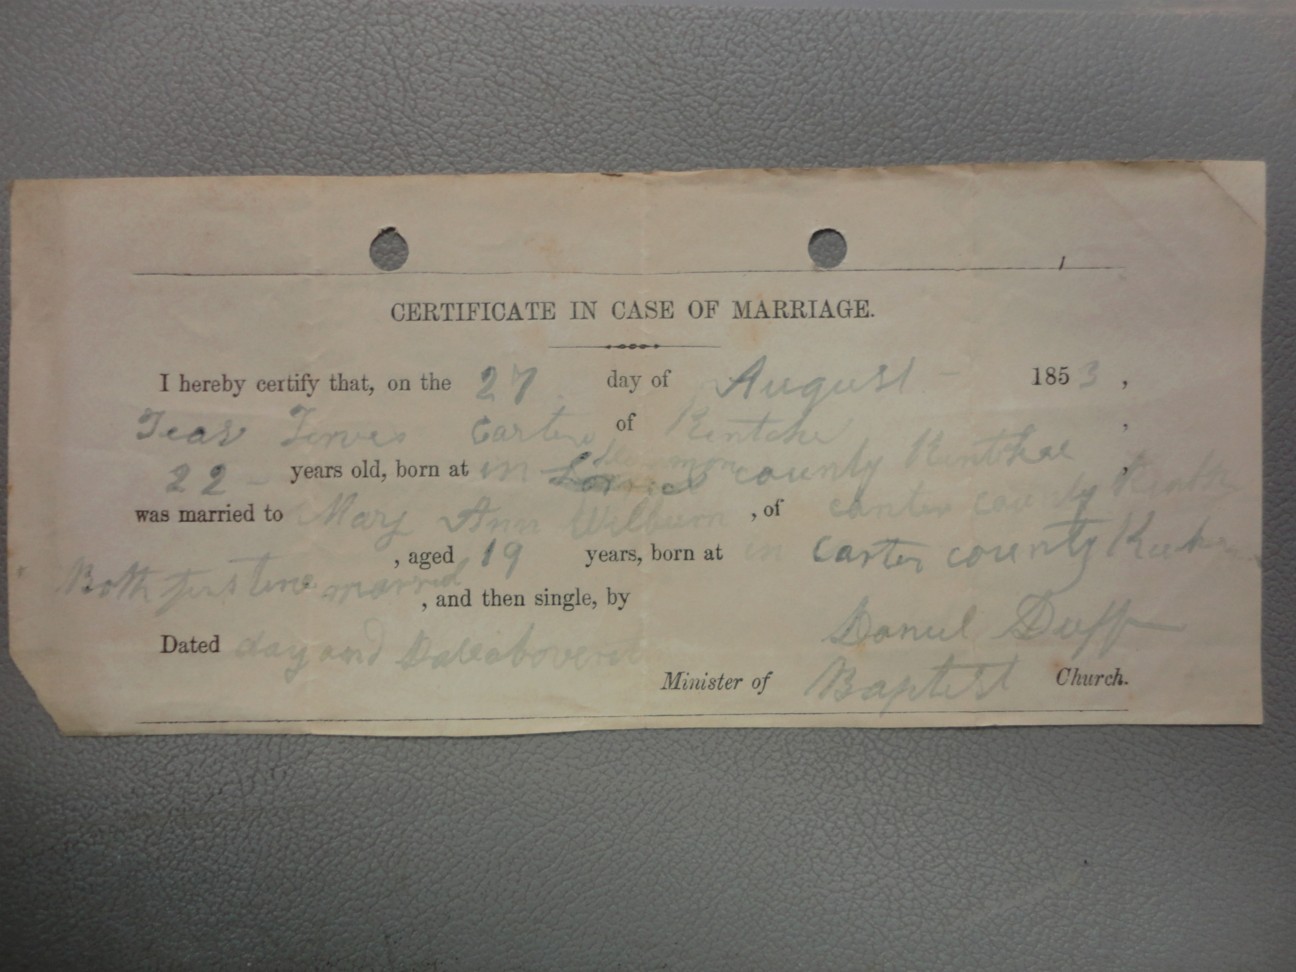 CERTIFICATE IN CASE OF MARRIAGE.
I hereby certify that, on the 27 day of August 1853,
of ,
22 years old, born at in county ,
was married to Mary Ann Wilburn , of carter county
, aged 19 years, born at in Carter county
Both married , and then single, by Daniel Duff
Dated day and Date above
Minister of Baptist Church.